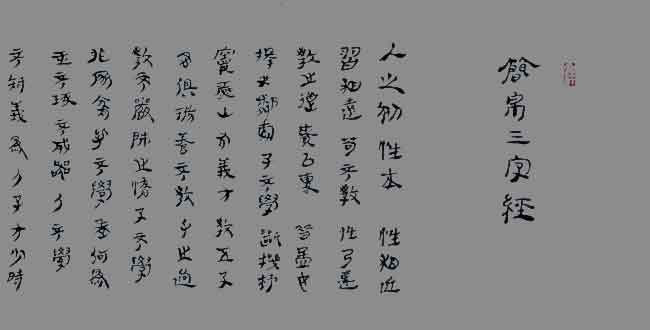 簡帛三字經
人之初 性本 性相近
習相遠 苟不教 性乃遷
教之道 貴以專 昔孟母
擇鄰處 子不學 斷機杼
竇燕山 有義方 教五子
名俱揚 養不教 父之過
教不嚴 師之惰 子不學
非所宜 幼不學 老何為
玉不琢 不成器 人不學
不知義 為人子 方少時